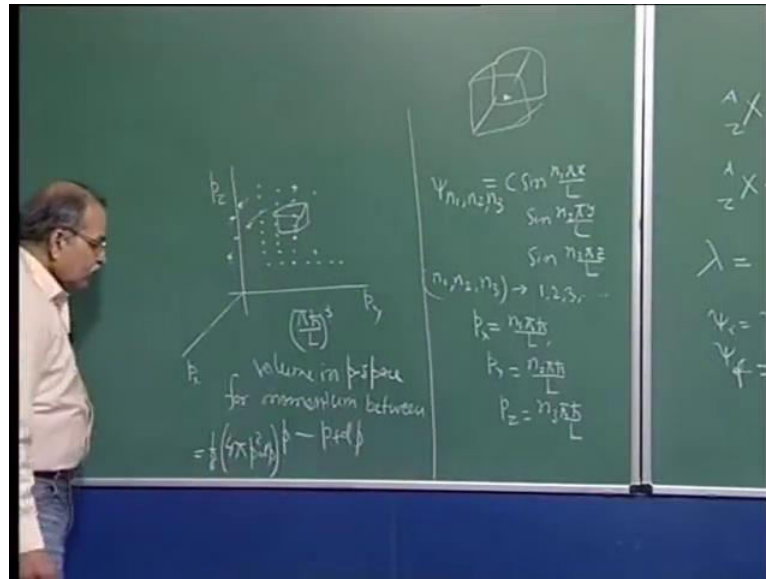 p_z
p_y
p_x
(πħ/L)³
volume in p-space
for momentum between
= 1/8 (4πp²dp) p — p+dp
ψ_{n₁,n₂,n₃} = C sin n₁πx/L
sin n₂πy/L
sin n₃πz/L
(n₁,n₂,n₃) → 1,2,3,...
p_x = n₁πħ/L,
p_y = n₂πħ/L
p_z = n₃πħ/L
A
Z X
A
Z X
λ =
ψ_i =
ψ_f =